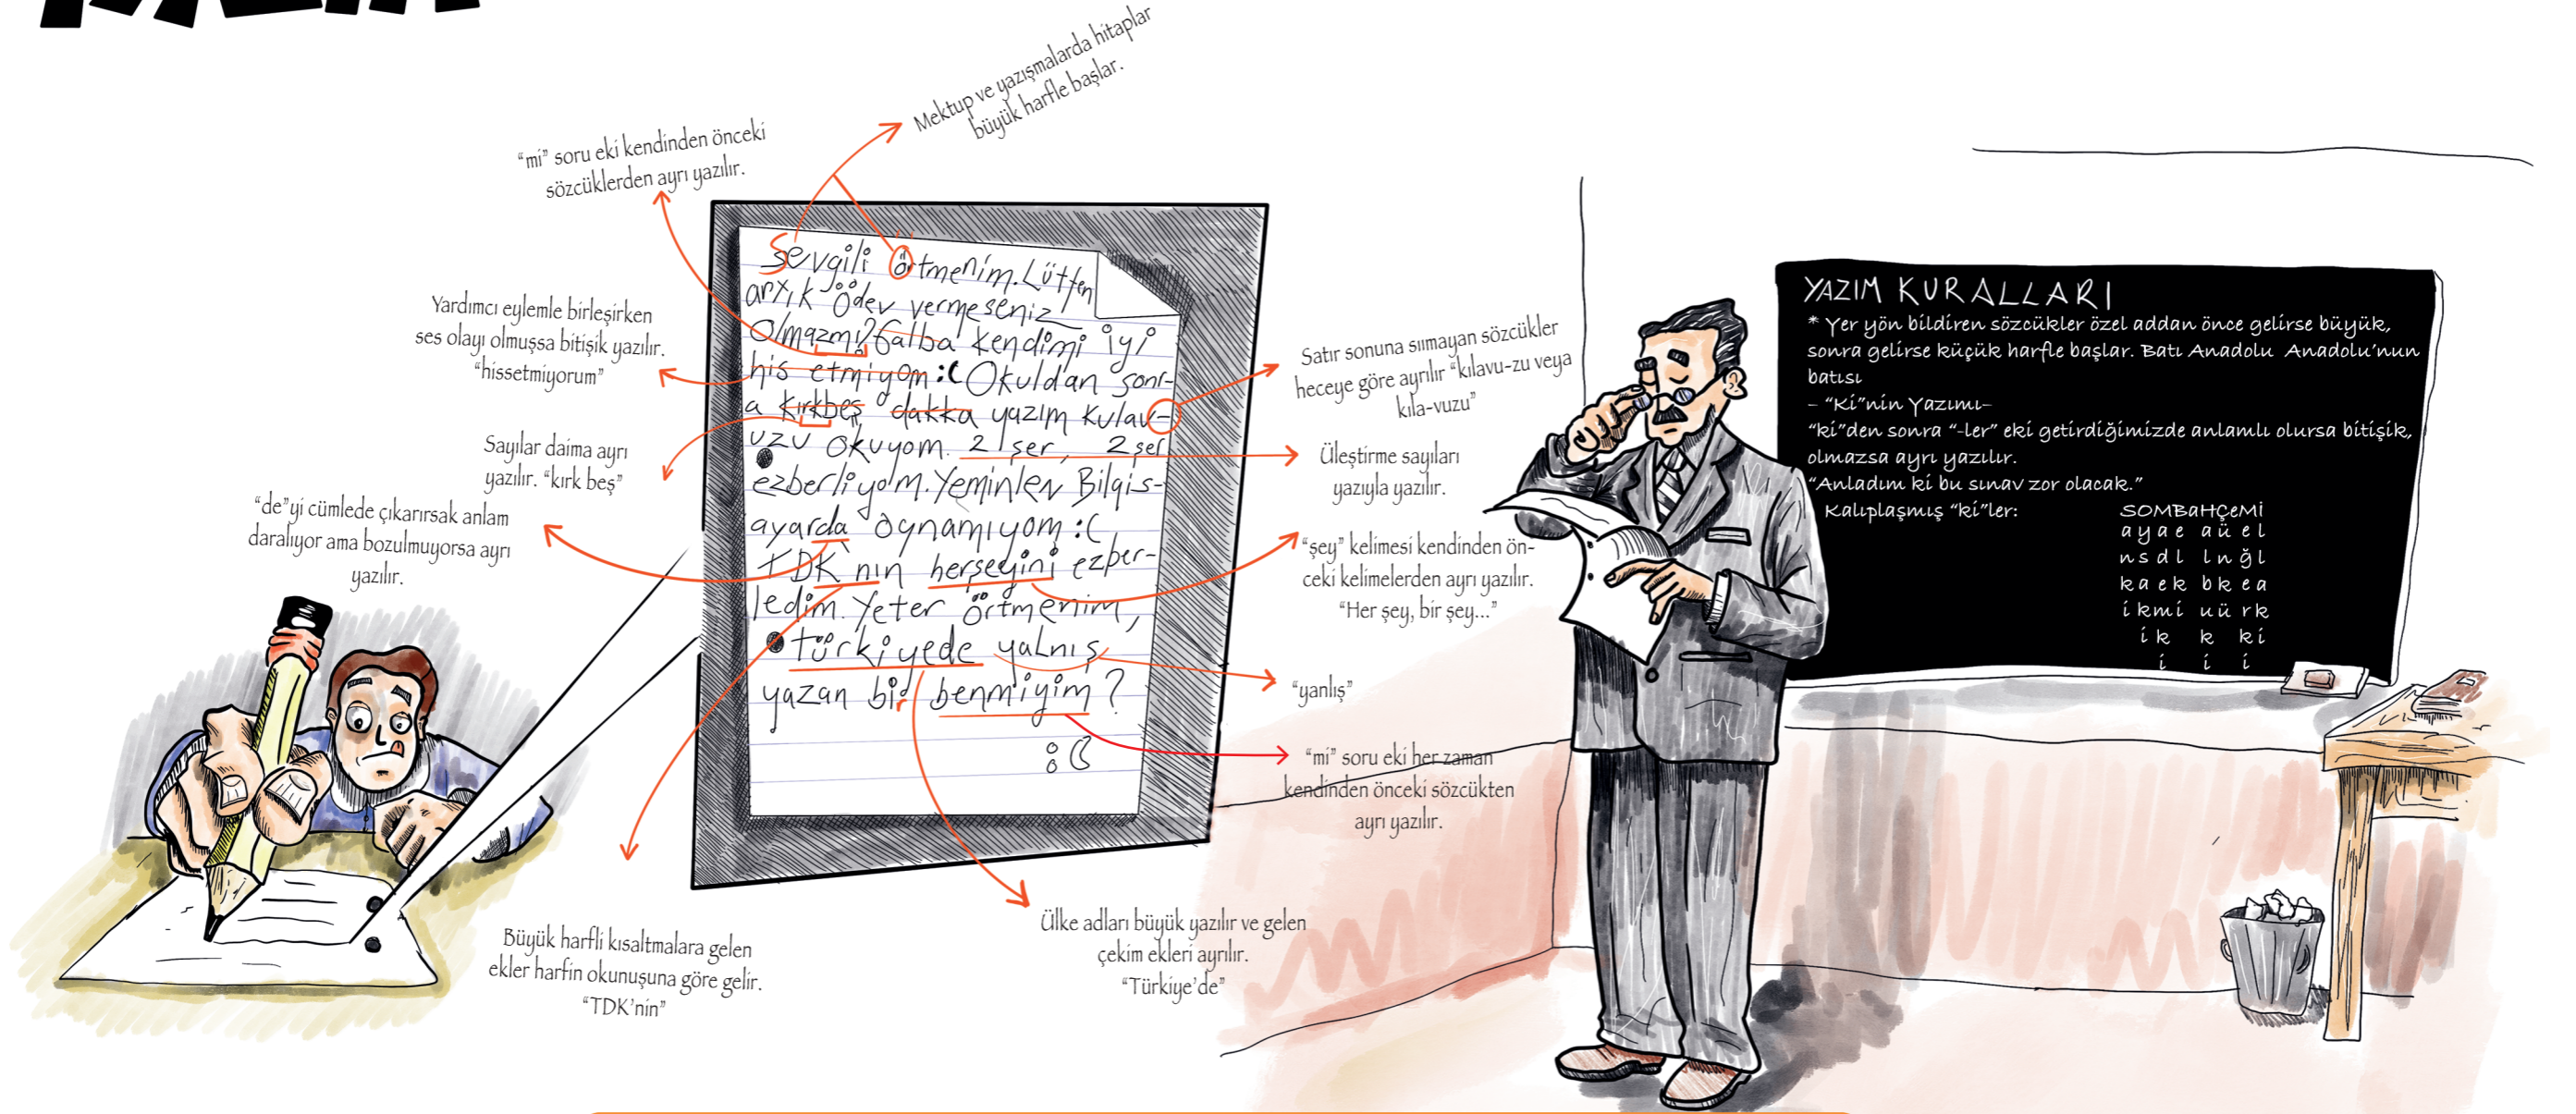 Mektup ve yazışmalarda hitaplar
büyük harfle başlar.
“mi” soru eki kendinden önceki
sözcüklerden ayrı yazılır.
Yardımcı eylemle birleşirken
ses olayı olmuşsa bitişik yazılır.
“hissetmiyorum”
Sayılar daima ayrı
yazılır. “kırk beş”
“de”yi cümlede çıkarırsak anlam
daralıyor ama bozulmuyorsa ayrı
yazılır.
Büyük harfli kısaltmalara gelen
ekler harfin okunuşuna göre gelir.
“TDK’nin”
Sevgili örtmenim. Lütfen
artık ödev vermeseniz
olmazmı? Galba kendimi iyi
his etmiyom :( Okuldan sonr-
a kırkbeş dakka yazım kulav-
uzu okuyom. 2 şer, 2 şer
ezberliyolm. Yeminlen Bilgis-
ayarda oynamıyom :(
TDK'nın herşeyini ezber-
ledim. Yeter örtmenim,
türkiyede yaLnış
yazan bir benmiyim?
:(
Satır sonuna sıımayan sözcükler
heceye göre ayrılır “kılavu-zu veya
kıla-vuzu”
Üleştirme sayıları
yazıyla yazılır.
“şey” kelimesi kendinden ön-
ceki kelimelerden ayrı yazılır.
“Her şey, bir şey...”
“yanlış”
“mi” soru eki her zaman
kendinden önceki sözcükten
ayrı yazılır.
Ülke adları büyük yazılır ve gelen
çekim ekleri ayrılır.
“Türkiye’de”
YAZIM KURALLARI
* Yer yön bildiren sözcükler özel addan önce gelirse büyük,
sonra gelirse küçük harfle başlar. Batı Anadolu Anadolu’nun
batısı
– “Ki”nin Yazımı–
“ki”den sonra “-ler” eki getirdiğimizde anlamlı olursa bitişik,
olmazsa ayrı yazılır.
“Anladım ki bu sınav zor olacak.”
Kalıplaşmış “ki”ler: SOMBaHÇeMİ
a y a e a ü e l
n s d l l n ğ l
k a e k b k e a
i k m i u ü r k
i k k k i
i i i